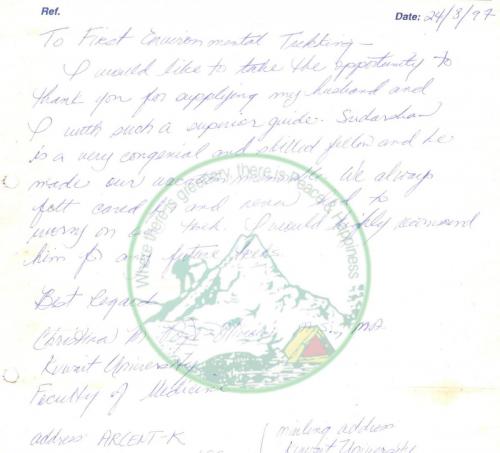 Ref.
Date: 24/3/97
To First Environmental Trekking –
I would like to take the opportunity to
thank you for supplying my husband and
I with such a superior guide. Sudarshan
is a very congenial and skilled fellow and he
made our vacation memorable. We always
felt cared for and never had to
worry on our trek. I would highly recommend
him for any future treks.
Best Regards
Christina M.
Kuwait University
Faculty of Medicine
address ARCENT-K
mailing address
Kuwait University
Where there is greenery, there is Peace & Happiness